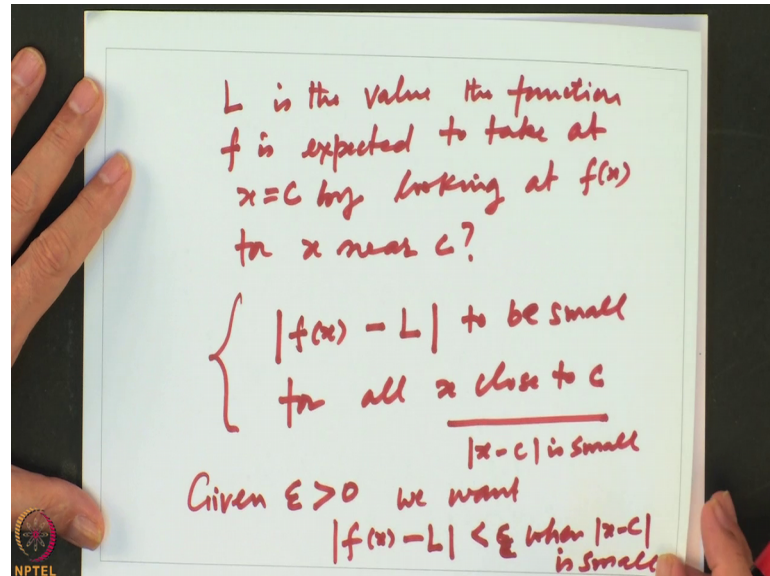 L is the value the function
f is expected to take at
x=c by looking at f(x)
for x near c?
|f(x) - L| to be small
for all x close to c
|x-c| is small
Given ε>0 we want
|f(x) - L| < ε when |x-c|
is small
NPTEL